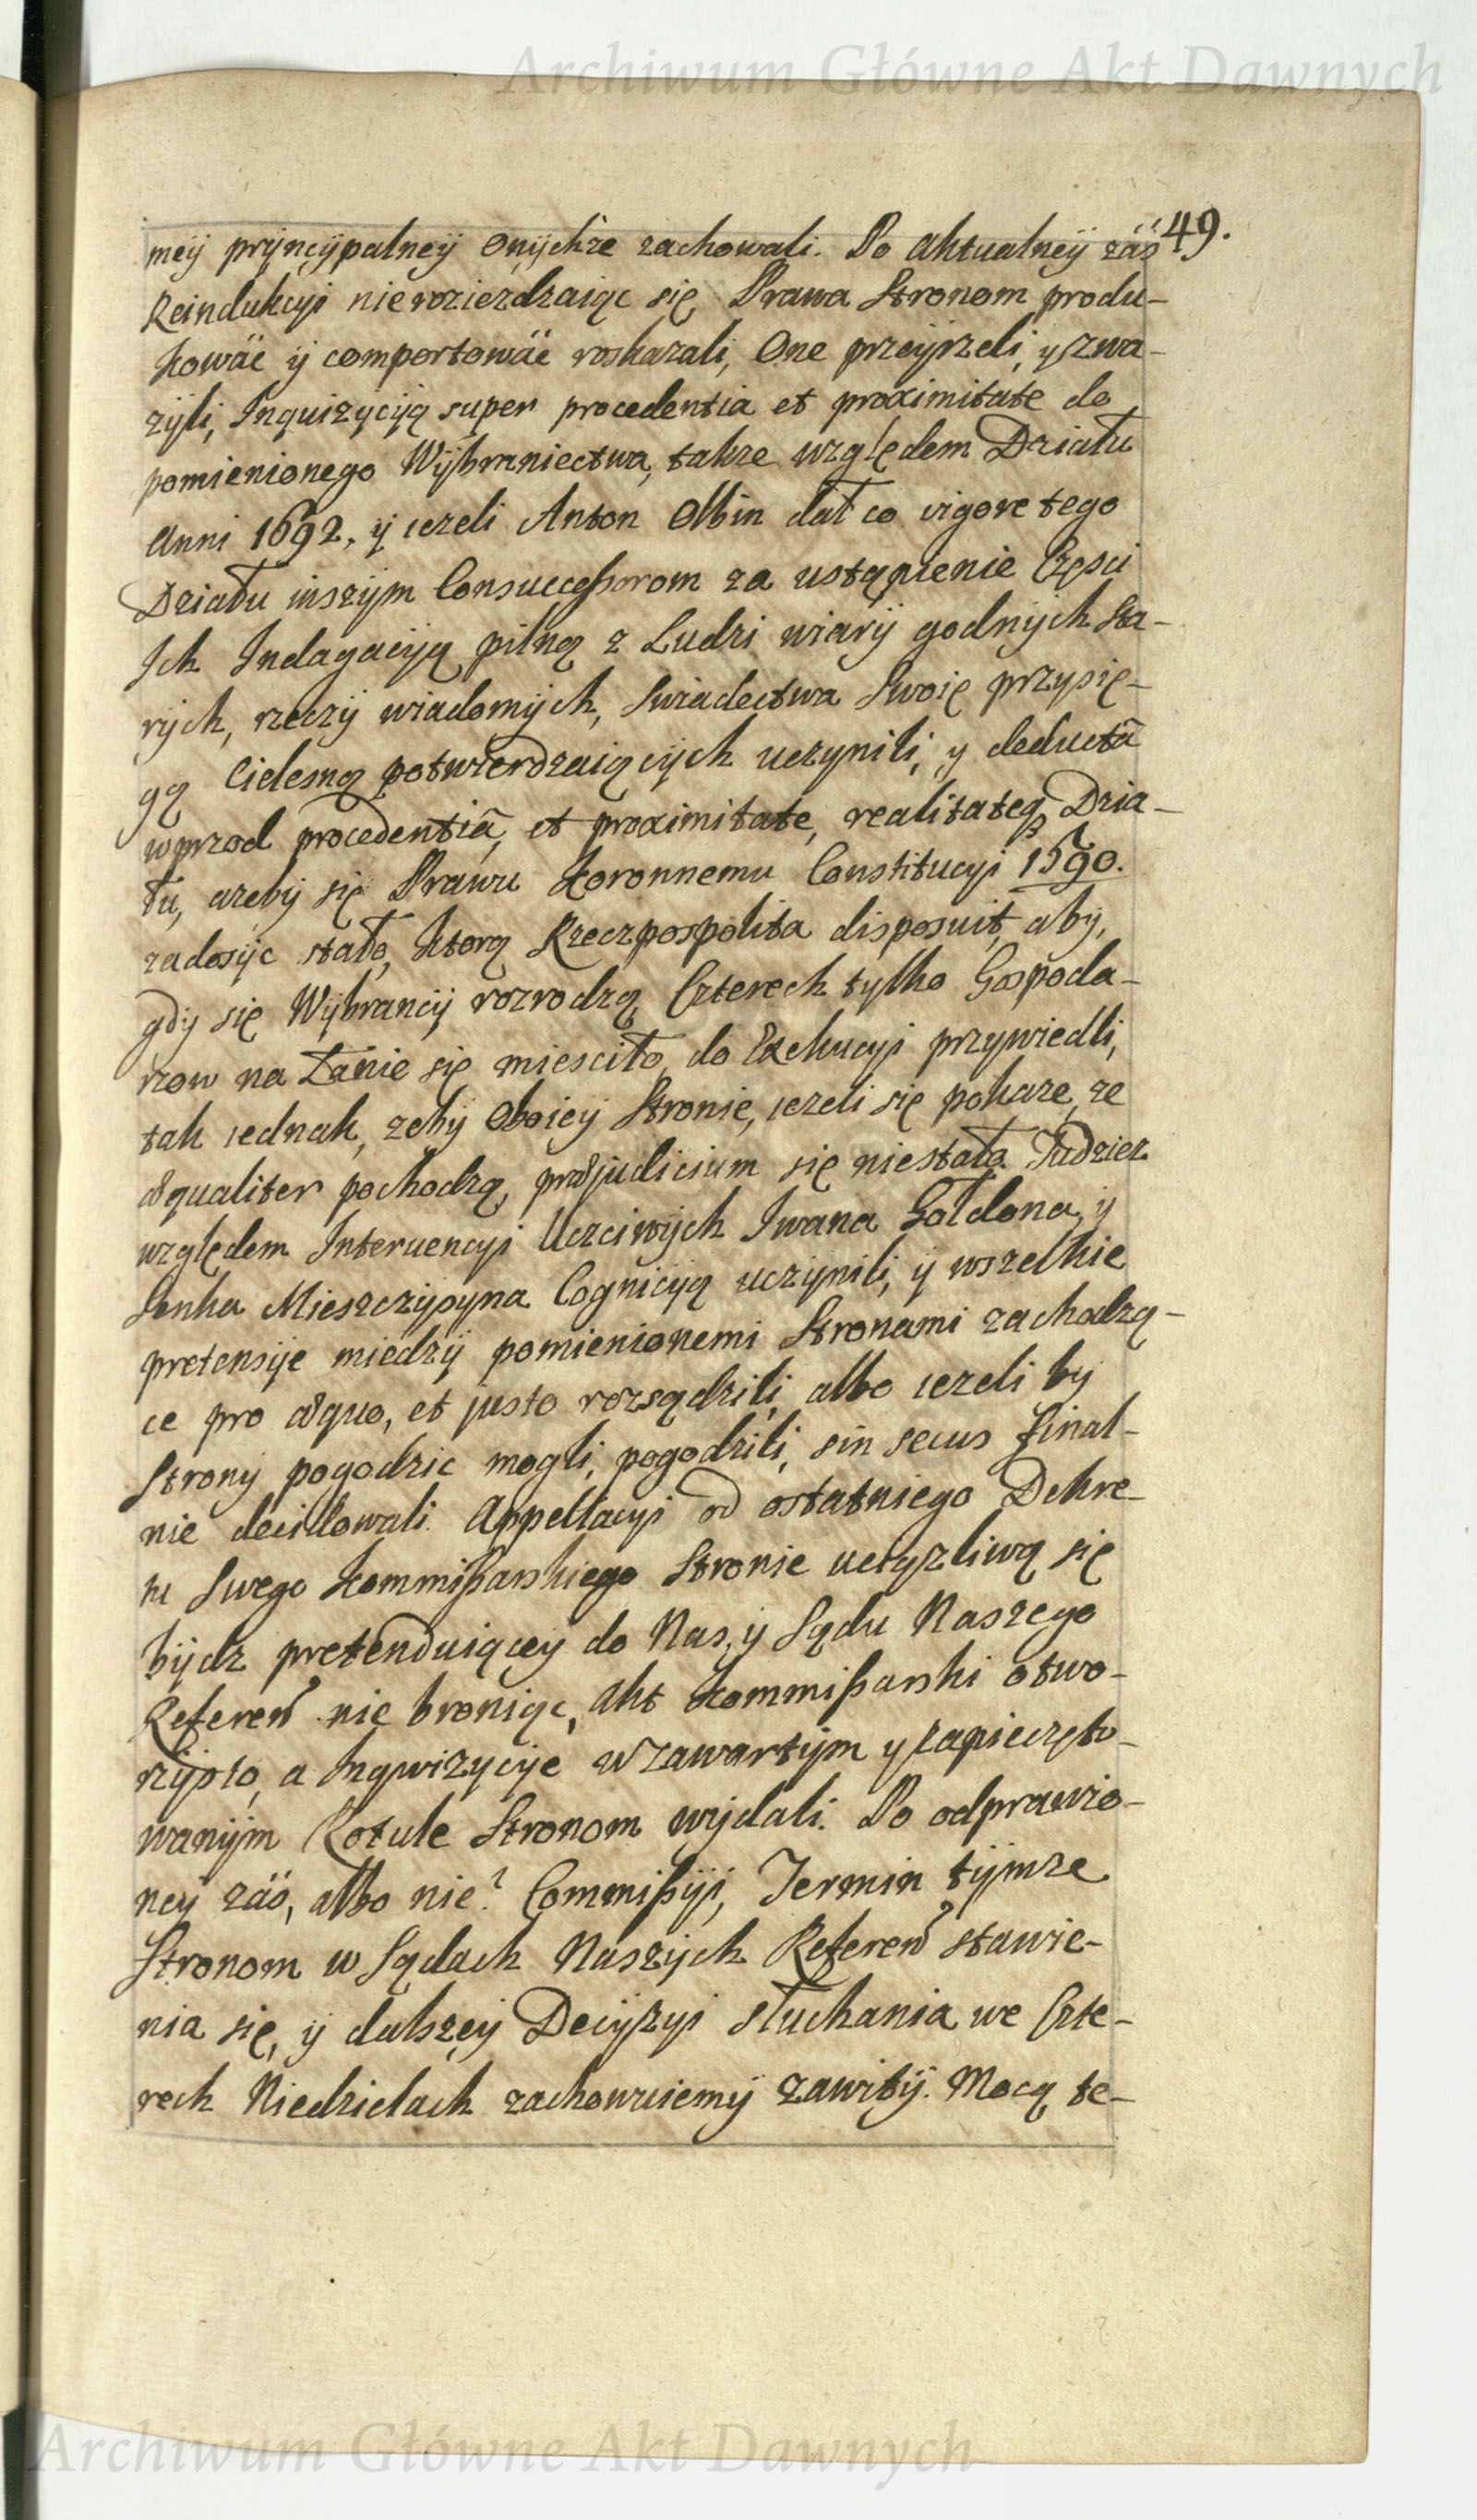 Archiwum Główne Akt Dawnych
49.
mey pryncypalney onychże zachowali. Po aktualney záś
Reindukcyi nierozieżdzaiąc się Prawa Stronom produ-
kowáć y comportowáć roskazali, One przeyrzeli, y zwa-
żyli, Inquizycyą super procedentia et proximitate do
pomienionego Wybraniectwa, także względem Działu
Anni 1692. y ieżeli Anton Olbin dał co vigore tego
Działu inszym Consuccessorom za ustąpienie Częsci
Ich Indagacyą pilną z Ludzi wiary godnych sta-
rych, rzeczy wiadomych, Swiadectwa Swoię przysię-
gą Cielesną potwierdzaiących uczynili, y deductâ
wprzod procedentiâ, et proximitate, realitateq₃ Dzia-
łu, ażeby się Prawu Koronnemu Constitucyi 1590.
zadosyc stało, ktorą Rzeczpospolita disposuit, aby,
gdy się Wybrancy rozrodzą, Czterech tylko Gospoda-
rzow na Łanie się miesciło, do Exekucyi przywiedli,
tak iednak, żeby Oboiey Stronie, ieżeli się pokaże, że
æqualiter pochodzą, præjudicium się niestało. Tudzież
względem Interuencyi Uczciwych Iwana Gołdona, y
Senka Mieszczysyna Cognicyą uczynili, y wszelkie
pretensye miedzy pomienionemi Stronami zachodzą-
ce pro æquo, et justo rozsądzili, albo ieżeli by
Strony pogodzic mogli, pogodzili, sin secus final-
nie decidowali. Appellacyi od ostatniego Dekre-
tu Swego Kommissarskiego Stronie uciążliwą się
bydz pretenduiącey do Nas, y Sądu Naszego
Referen nie broniąc, Akt Kommissarski otwo-
rzysto, a Inqwizycye w zawartym y zapieczęto-
wanym Rotule Stronom wydali. Po odprawio-
ney záś, albo nie? Commissyi, Termin tymże
Stronom w Sądach Naszych Referen stawie-
nia się, y dalszey Decyzyi słuchania we Czte-
rech Niedzielach zachowuiemy zawity. Mocą te-
Archiwum Główne Akt Dawnych